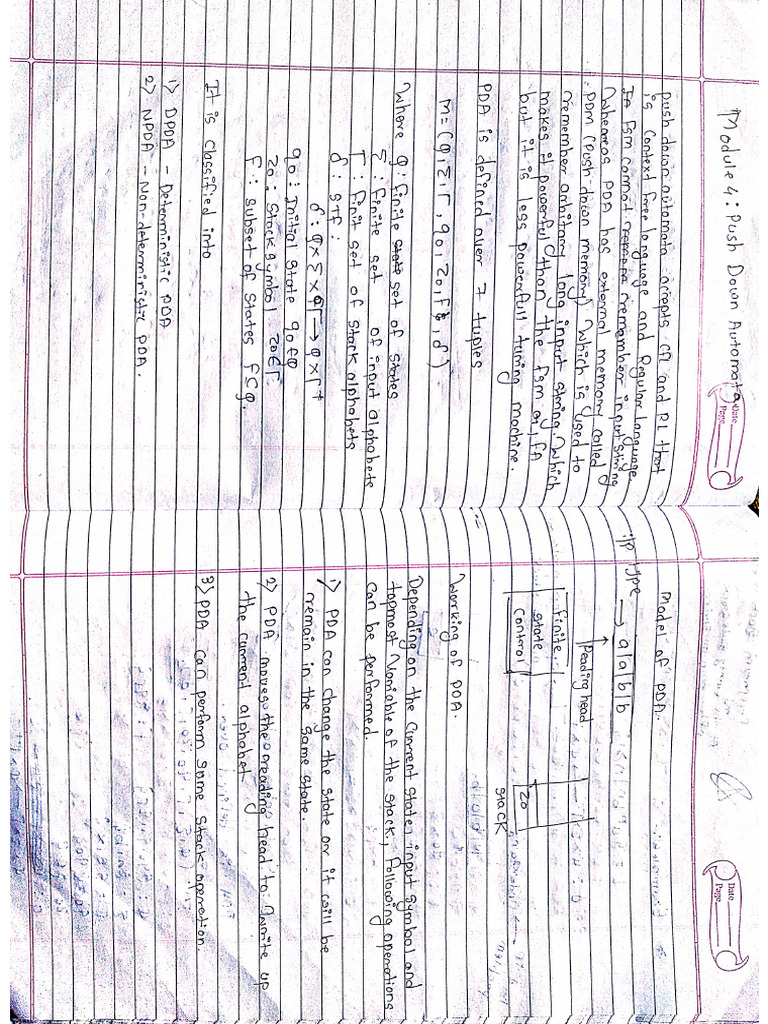 Module 4: Push Down Automata
Date
Page
push down automata accepts CFL and RL that
is context free language and Regular language
In FSM cannot remember input string
Whereas PDA has external memory called
PDM (Push down memory) which is used to
remember arbitrary long input string. Which
makes it powerful than the FSM or FA
but it is less powerfull tuning machine.
PDA is defined over 7 tuples
M = (Q, Σ, Γ, q0, z0, F, δ)
Where Q: finite set of states
Σ: finite set of input alphabets
Γ: finit set of stack alphabets
δ: STF:
δ: Q × Σ × Γ → Q × Γ*
q0: Initial state q0 ∈ Q
z0: Stack symbol z0 ∈ Γ
F: subset of states F ⊆ Q.
It is classified into
1) DPDA - Deterministic PDA
2) NPDA - Non-deterministic PDA.
Date
Page
Model of PDA.
i/p type → a a b b
Reading head
finite
state
control
z0
stack
Working of PDA.
Depending on the current state, input symbol and
topmost variable of the stack, following operations
can be performed.
1) PDA can change the state or it will be
remain in the same state.
2) PDA moves the reading head to write up
the current alphabet
3) PDA can perform some stack operation.